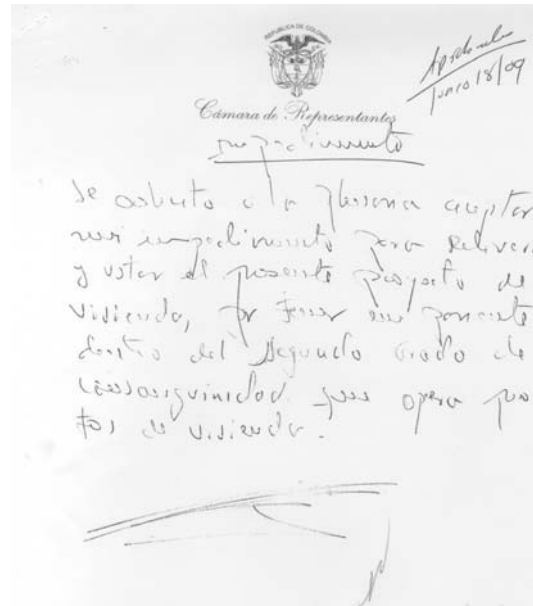 REPUBLICA DE COLOMBIA
Aprobado
Junio 18/09
Cámara de Representantes
Impedimento
Se a la Plenaria aceptar
mi impedimento para
y votar el presente proyecto de
vivienda, por tener un pariente
dentro del Segundo Grado de
consanguinidad que opera
de vivienda.